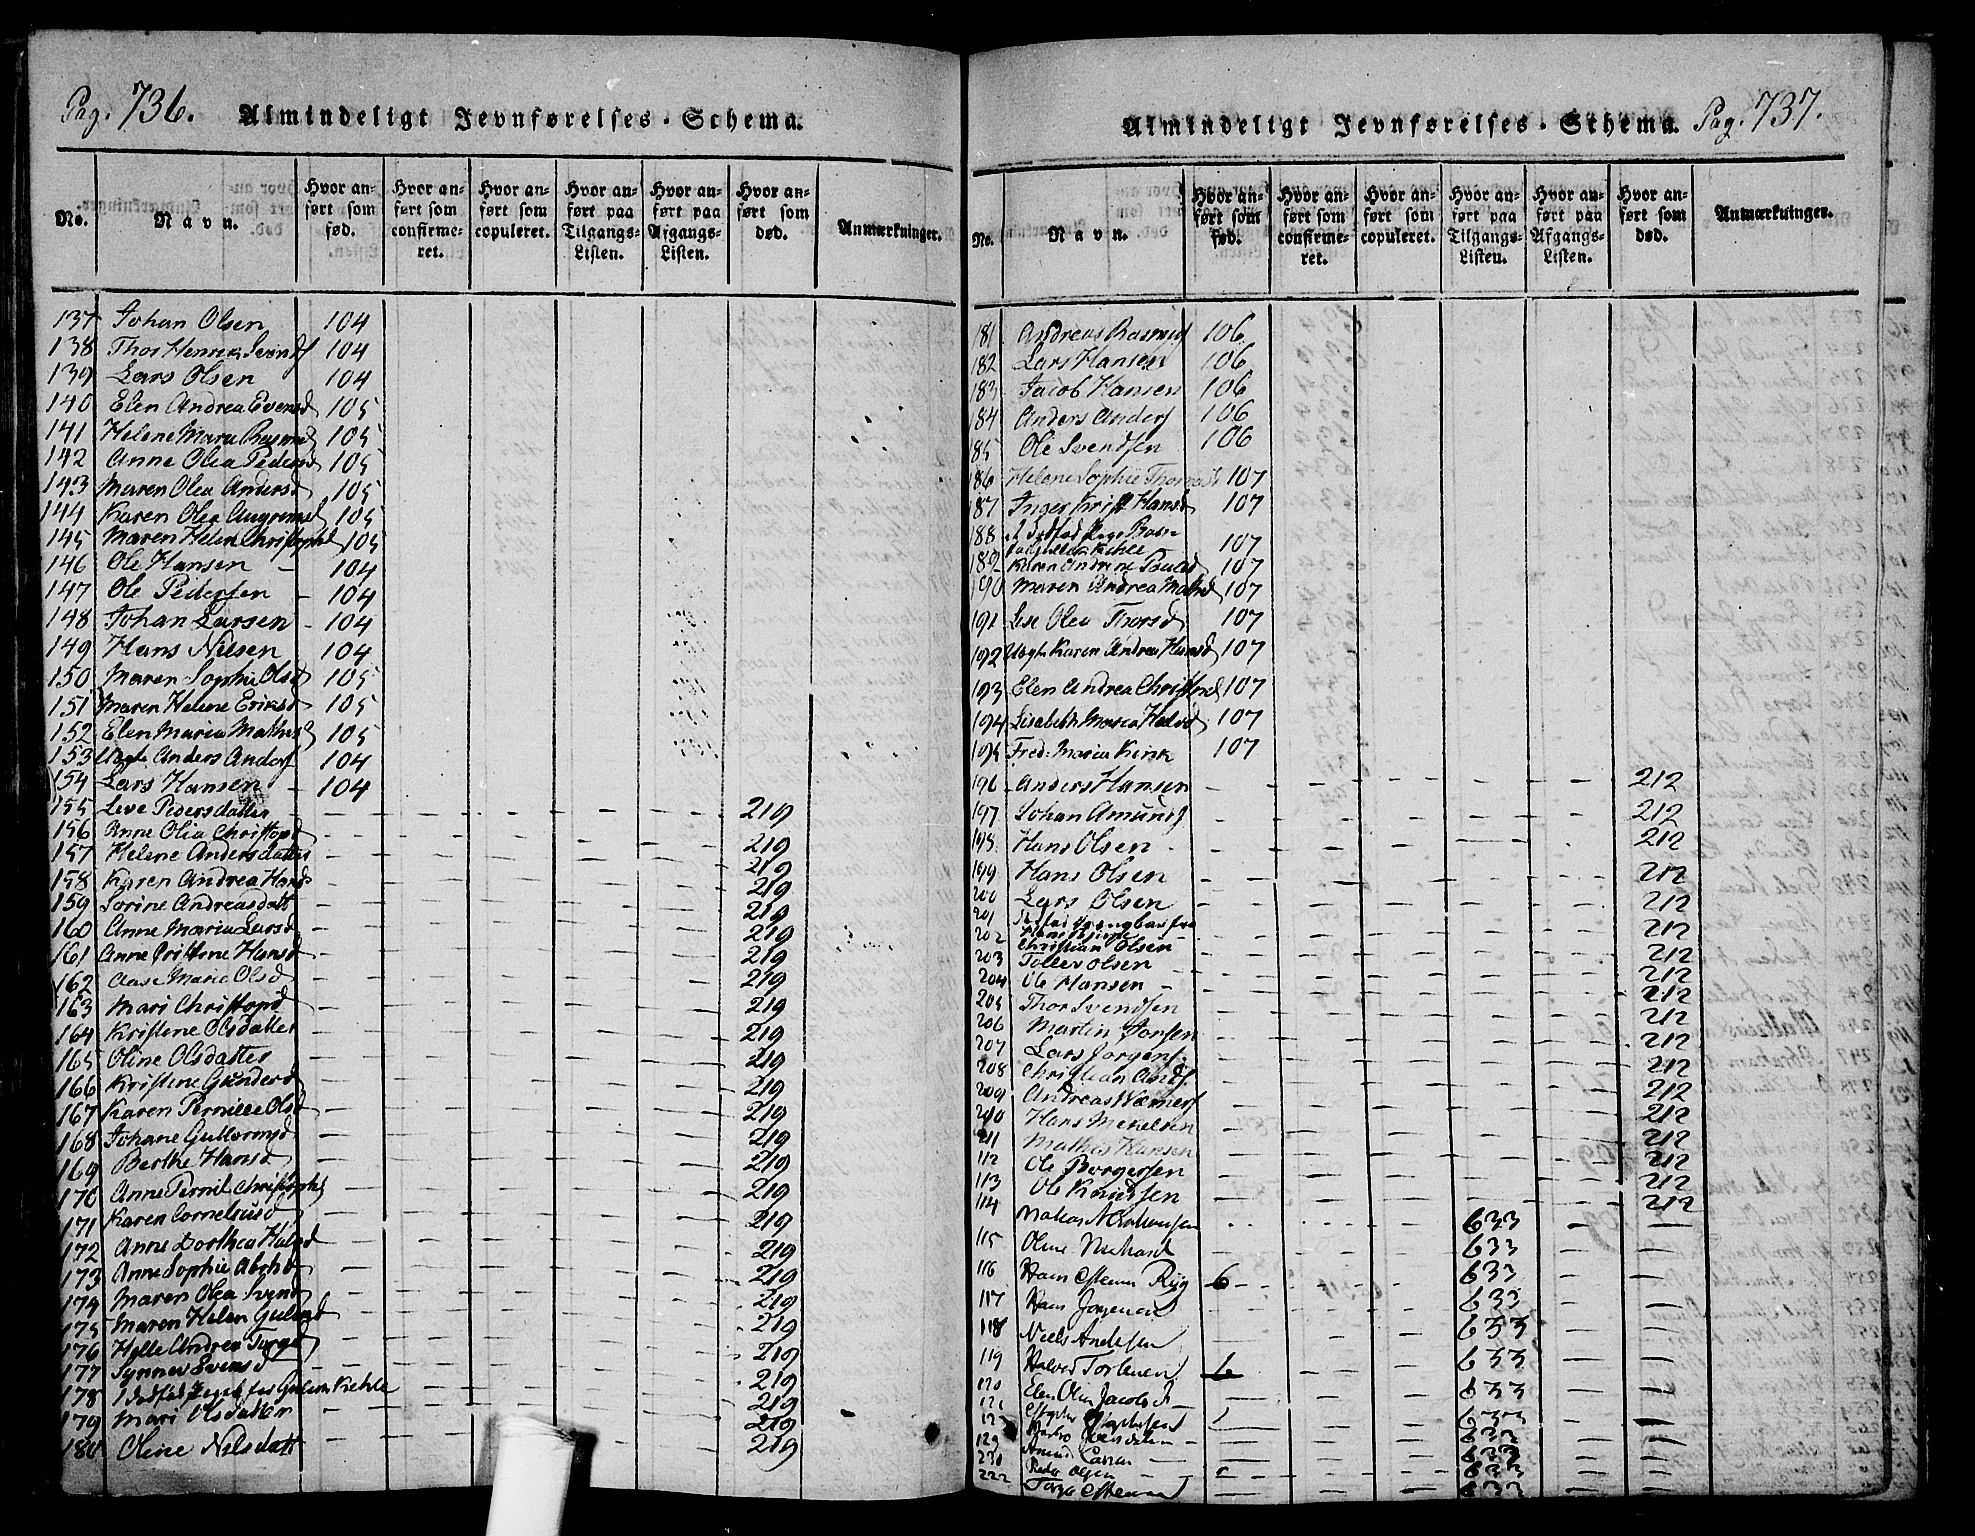 Pag. 736. Almindeligt Jevnførelses-Schema.
No. Navn. Hvor anført som fød. Hvor anført som confirmeret. Hvor anført som copuleret. Hvor anført paa Tilgangs-Listen. Hvor anført paa Afgangs-Listen. Hvor anført som død. Anmærkninger.
137 Johan Olsen 104
138 Thor Henrik Svends 104
139 Lars Olsen 104
140 Elen Andrea Evensd 105
141 Helene Maria Rasmusd 105
142 Anne Olea Pedersd 105
143 Maren Olea Andersd 105
144 Karen Olea 105
145 Maren Helen Christophd 105
146 Ole Hansen - 104
147 Ole Pedersen - 104
148 Johan Larsen - 104
149 Hans Nilsen 104
150 Maren Sophie Olsd 105
151 Maren Helene Eriksd 105
152 Elen Maria Mathisd 105
153 Uægte Anders Anders 104
154 Lars Hansen - 104
155 Lise Pedersdatter - - - - - 219
156 Anne Olia Christopd - - - - - 219
157 Helene Andersdatter - - - - - 219
158 Karen Andrea Hansd - - - - - 219
159 Sorine Andreasdatt - - - - - 219
160 Anne Maria Larsd - - - - - 219
161 Anne Cristine Hansd - - - - - 219
162 Aase Marie Olsd - - - - - 219
163 Mari Christopd - - - - - 219
164 Kristene Olsdatter - - - - - 219
165 Oline Olsdatter - - - - - 219
166 Kristine Gunderd - - - - - 219
167 Karen Pernille Olsd - - - - - 219
168 Johane Guttormsd - - - - - 219
169 Berthe Hansd - - - - - 219
170 Anne Pernil Christophd - - - - - 219
171 Karen Corneliusd - - - - - 219
172 Anne Dorthea Halvd - - - - - 219
173 Anne Sophie Abrahd - - - - - 219
174 Maren Olea Svend - - - - - 219
175 Maren Helen - - - - - 219
176 Helle Andrea Torgd - - - - - 219
177 Synnev Evensd - - - - - 219
178 1 dødfød Pigeb. - - - - 219
179 Mari Olsdatter - - - - - 219
180 Oline Nilsdatt - - - - - 219
Almindeligt Jevnførelses-Schema. Pag. 737.
No. Navn. Hvor anført som fød. Hvor anført som confirmeret. Hvor anført som copuleret. Hvor anført paa Tilgangs-Listen. Hvor anført paa Afgangs-Listen. Hvor anført som død. Anmærkninger.
181 Andreas Rasmus 106
182 Lars Hansen 106
183 Jacob Hansen 106
184 Anders Anders 106
185 Ole Svendsen 106
186 Helene Sophie 107
187 Inger Krist Hansd 107
188 et dødfød Pige Barn 107
189 Karen Andrine Poulsd 107
190 Maren Andrea 107
191 Lise Olea Thorsd 107
192 Uægte Karen Andrea Hansd 107
193 Elen Andrea Christophd 107
194 Lisabeth Maria Halvd 107
195 Fred: Maria Kirsk 107
196 Anders Hansen - - - - - 212
197 Johan Amunds - - - - - 212
198 Hans Olsen - - - - - 212
199 Hans Olsen - - - - - 212
200 Lars Olsen - - - - - 212
201 - - - - - 212
202 Christian Olsen - - - - - 212
203 Tollev Olsen - - - - - 212
204 Ole Hansen - - - - - 212
205 Thor Svendsen - - - - - 212
206 Martin Jonsen - - - - - 212
207 Lars Jørgens. - - - - - 212
208 Christian Ands - - - - - 212
209 Andreas - - - - - 212
210 Hans Mikelsen - - - - - 212
211 Mathis Hansen - - - - - 212
112 Ole Borgersen - - - - - 212
113 Ole Knudsen - - - - - 212
114 - - - 633 - -
115 Oline - - - 633 - -
116 Hans 6 - - 633 - -
117 Hans - - - 633 - -
118 Niels Andersen - - - 633 - -
119 Halvor 6 - - 633 - -
120 Elen Olea Jacobs - - - 633 - -
633 - -
633 - -
129 633 - -
230 Peder Olsen 633 - -
222